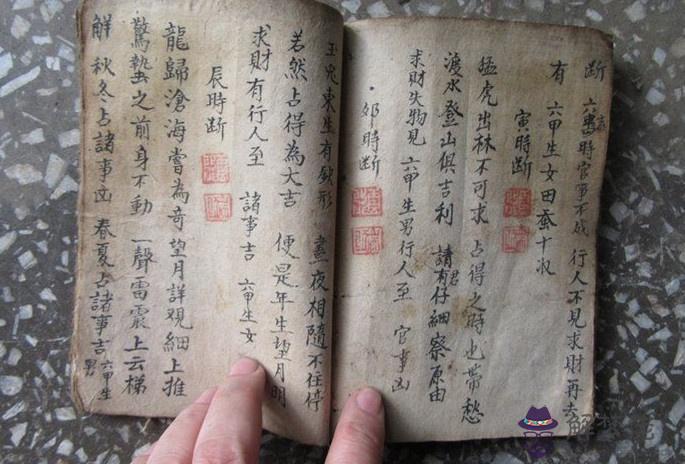 断 六畜時官事不成 行人不見求財再去
有 六甲生女田蚕十収
寅時断
猛虎出林不可求 占得之時也帶愁
渡水登山俱吉利 請君仔細察原由
求財失物見 六甲生男行人至 官事凶
卯時断
玉兔東生有缺形 晝夜相隨不住停
若然占得為大吉 便是年生望月明
求財有行人至 諸事吉 六甲生女
辰時断
龍歸滄海嘗為奇 望月詳观細上推
驚蟄之前身不動 一聲雷震上云梯
解 秋冬占諸事凶 春夏占諸事吉 六甲生男